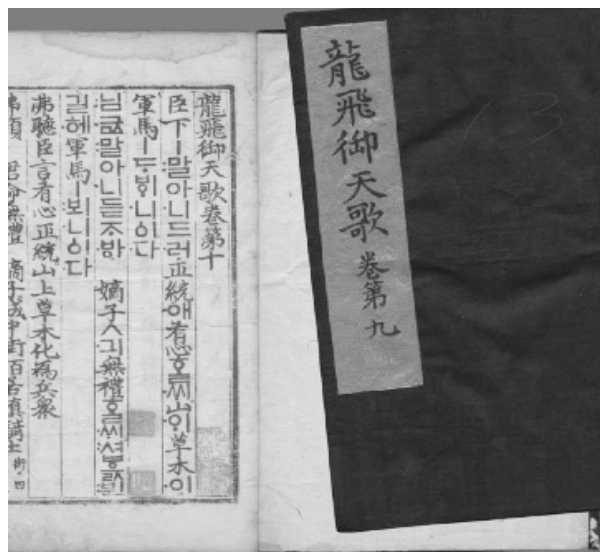 龍飛御天歌 卷第九
龍飛御天歌卷第十
臣下ㅣ말아니드러正統애有心ᄒᆞᆯᄊᆡ山ᄋᆡ草木이
軍馬ㅣᄃᆞᄫᆡ니ᅌᅵ다
님긊말아니듣ᄌᆞᄫᅡ 嫡子ㅅ긔無禮ᄒᆞᆯᄊᆡ셔ᄫᅳᆳ뷘
길헤軍馬ㅣ뵈니ᅌᅵ다
弗聽臣言有心正統山上草木化爲兵衆
弗順 君命無禮 嫡子城中街陌若塡騎士